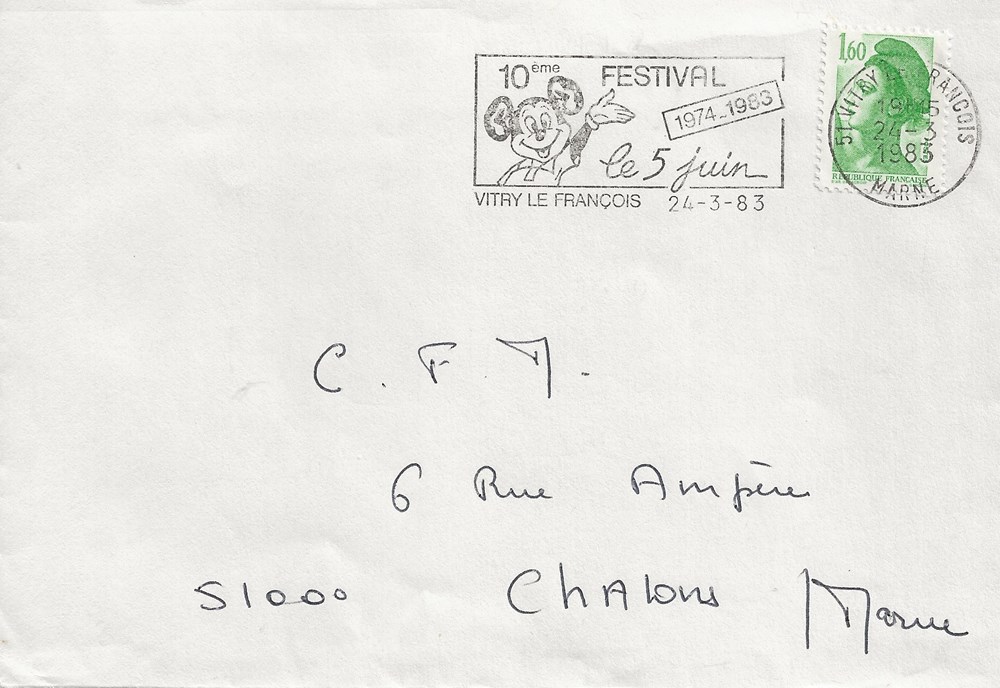 10ème FESTIVAL
1974-1983
le 5 juin
VITRY LE FRANÇOIS 24-3-83
1,60
REPUBLIQUE FRANÇAISE
51 VITRY LE FRANCOIS
19H15
24-3
1983
MARNE
C. F. M.
6 Rue Ampère
51000 Chalons Marne